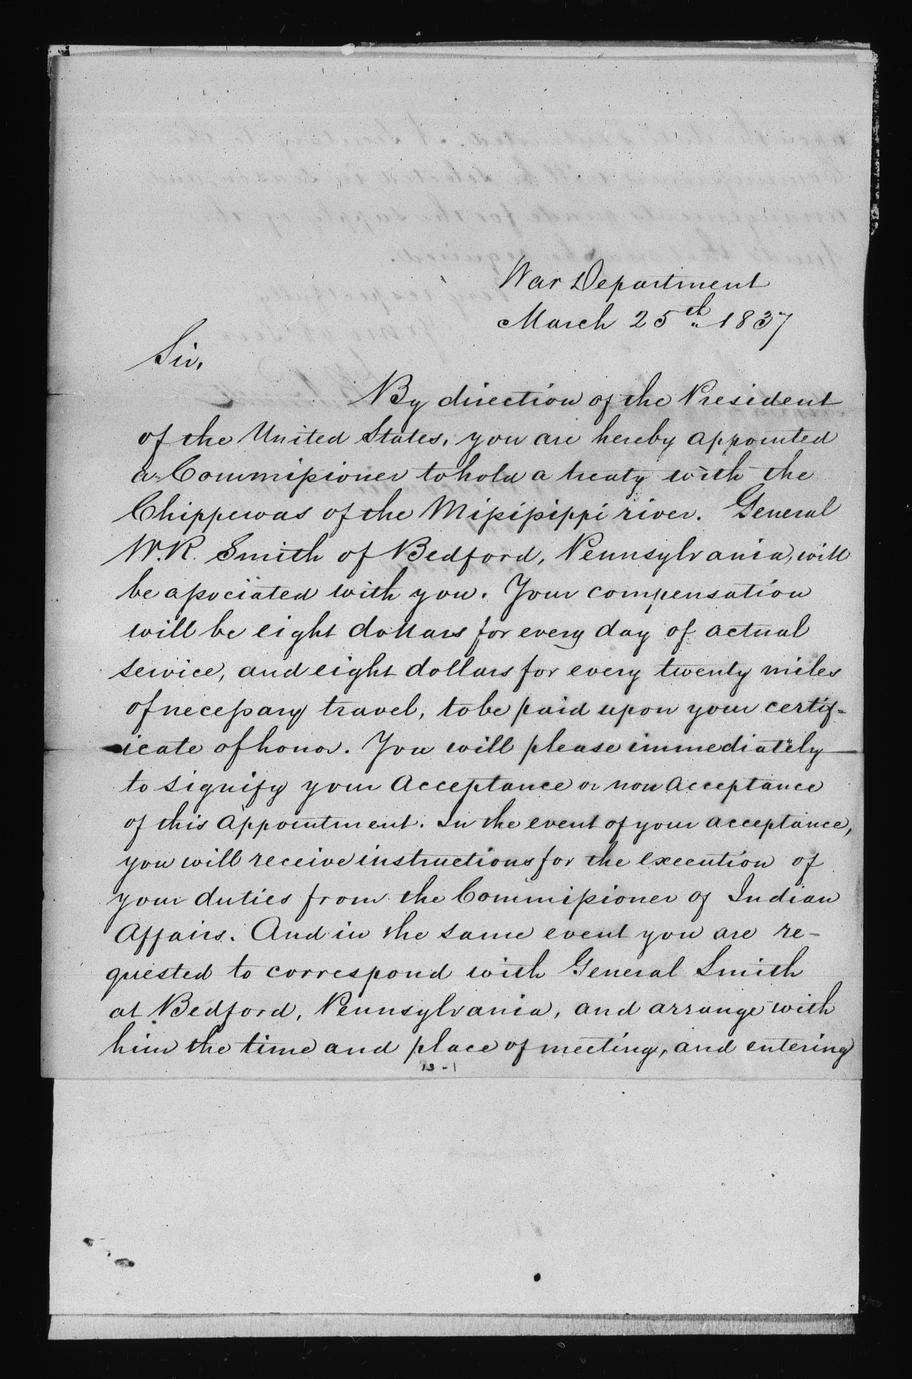 War Department
March 25th 1837
Sir,
By direction of the President
of the United States, you are hereby appointed
a Commissioner to hold a treaty with the
Chippewas of the Mississippi river. General
W. R. Smith of Bedford, Pennsylvania, will
be associated with you. Your compensation
will be eight dollars for every day of actual
service, and eight dollars for every twenty miles
of necessary travel, to be paid upon your certif-
icate of honor. You will please immediately
to signify your acceptance or non acceptance
of this appointment. In the event of your acceptance,
you will receive instructions for the execution of
your duties from the Commissioner of Indian
Affairs. And in the same event you are re-
quested to correspond with General Smith
at Bedford, Pennsylvania, and arrange with
him the time and place of meeting, and entering
13-1